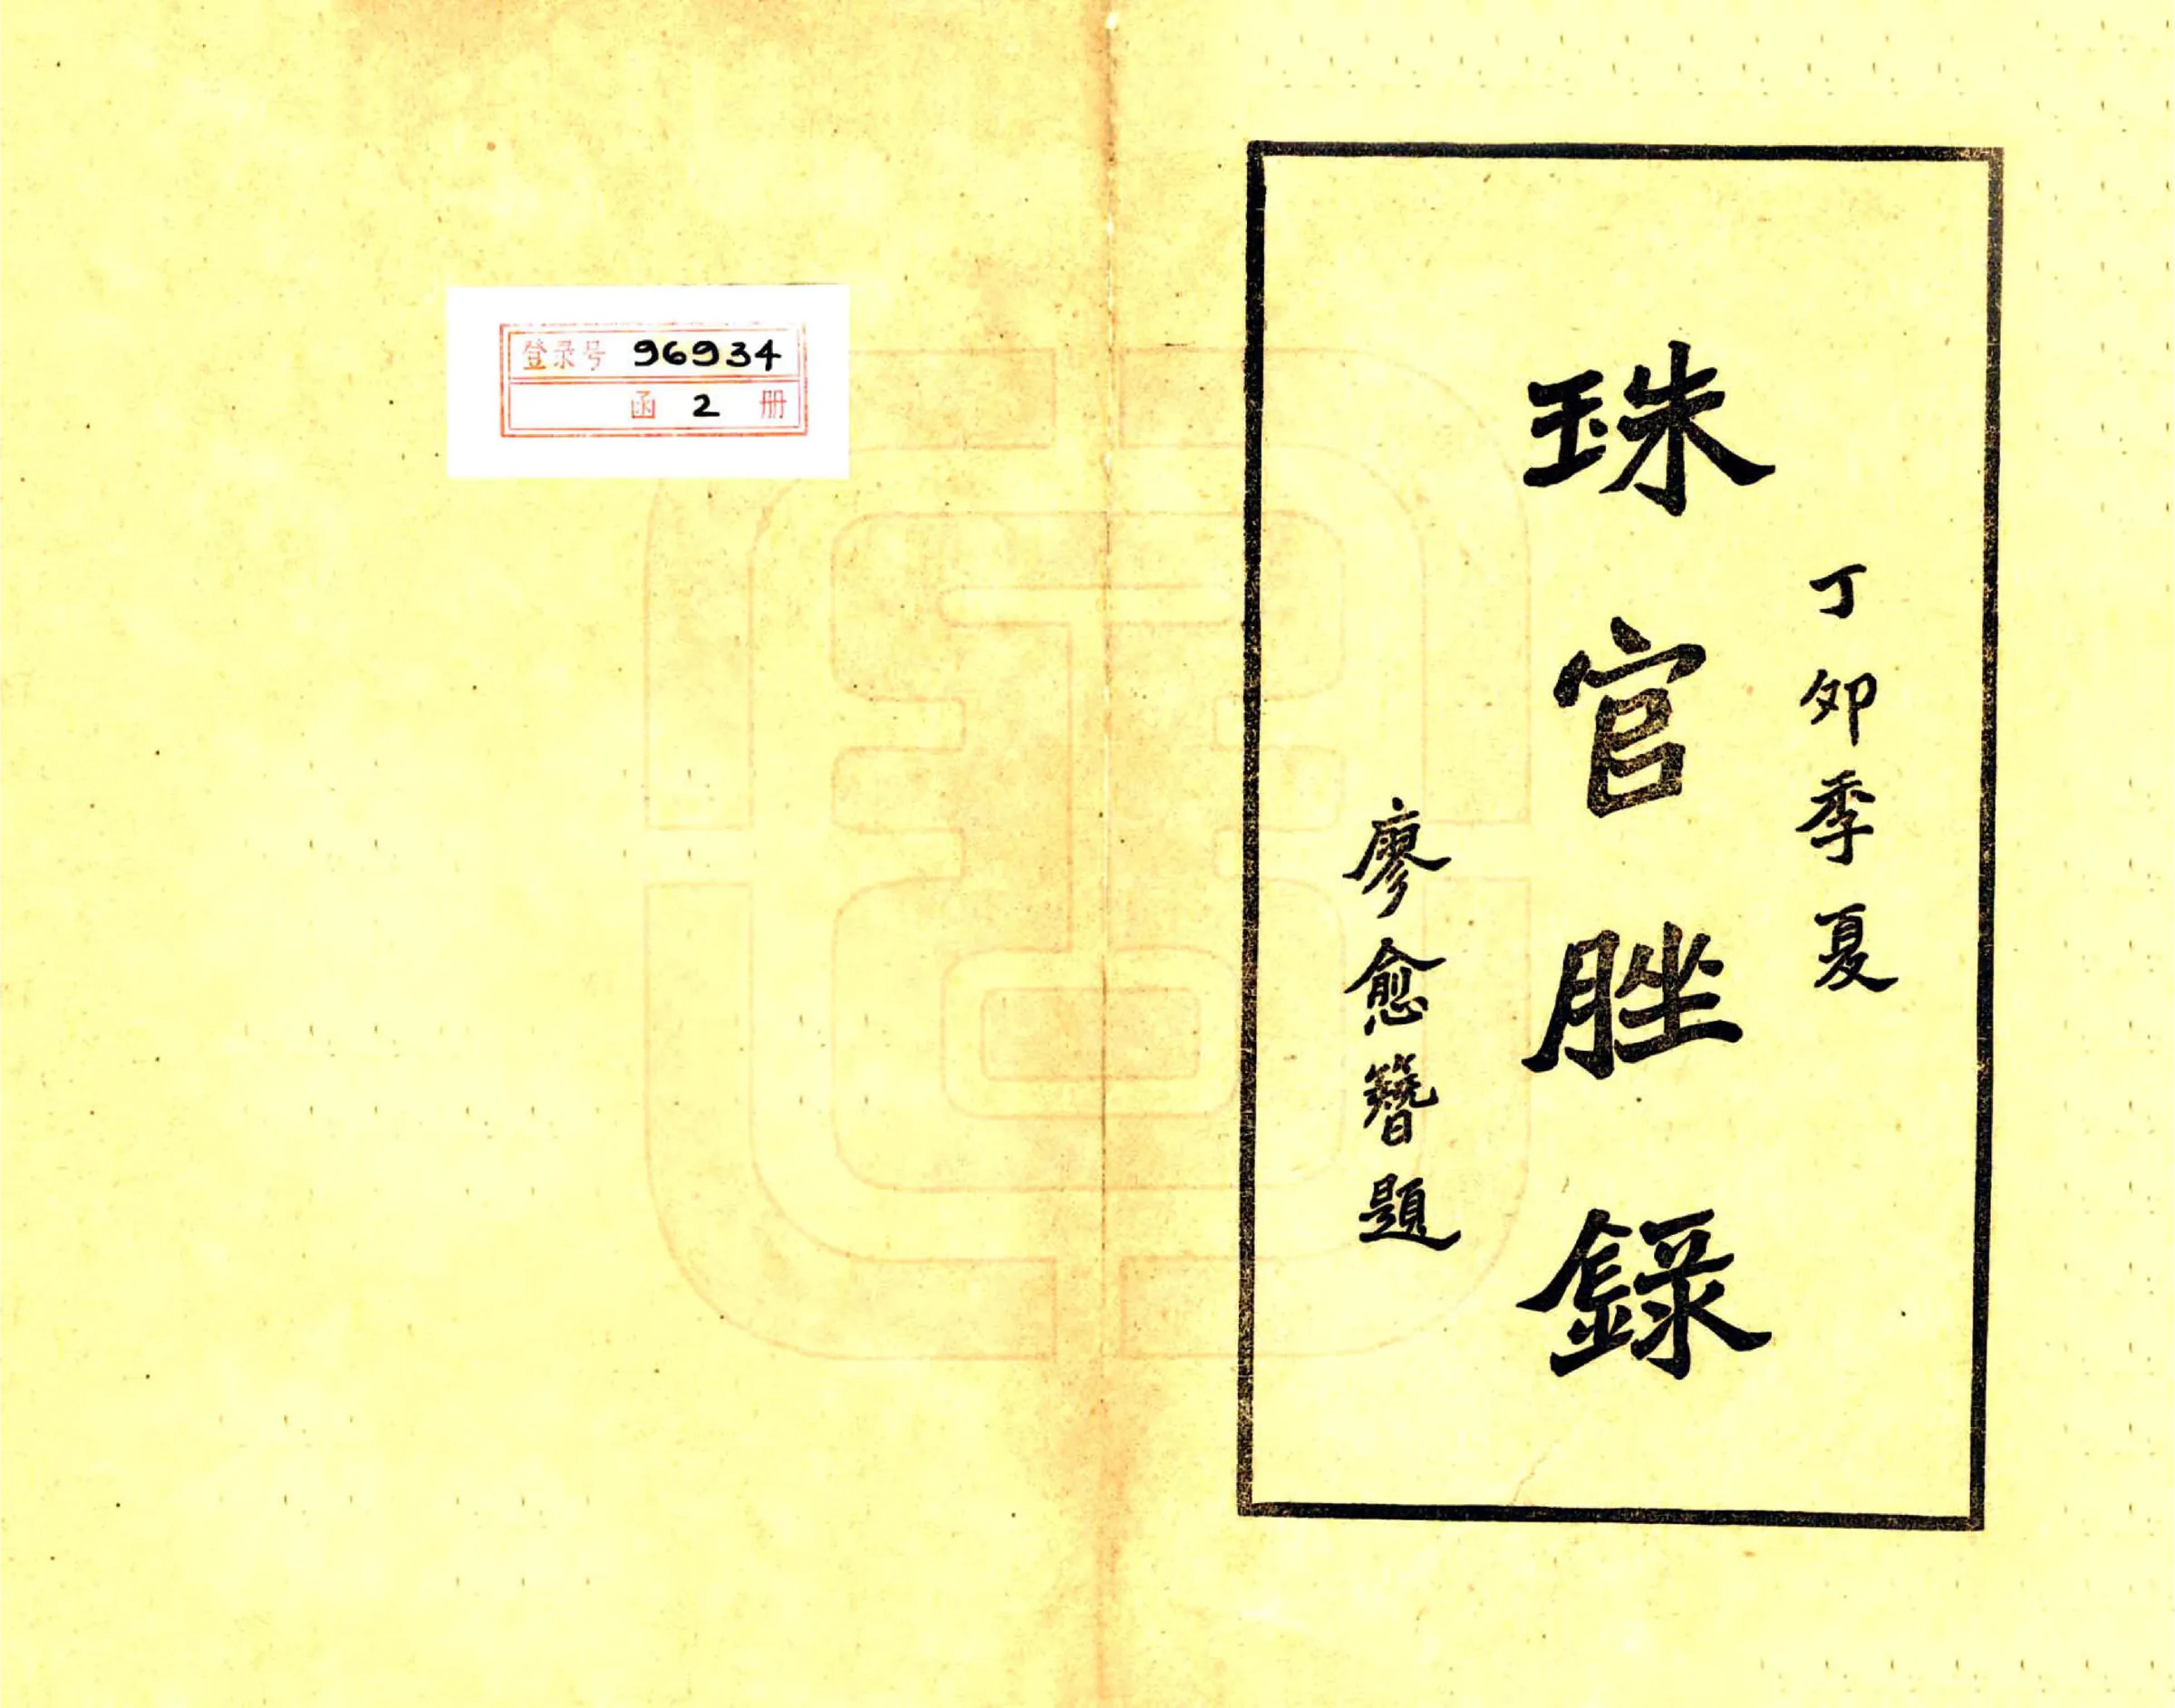 丁卯季夏
珠官脞錄
廖愈簪題
登录号 96934
函 2 册